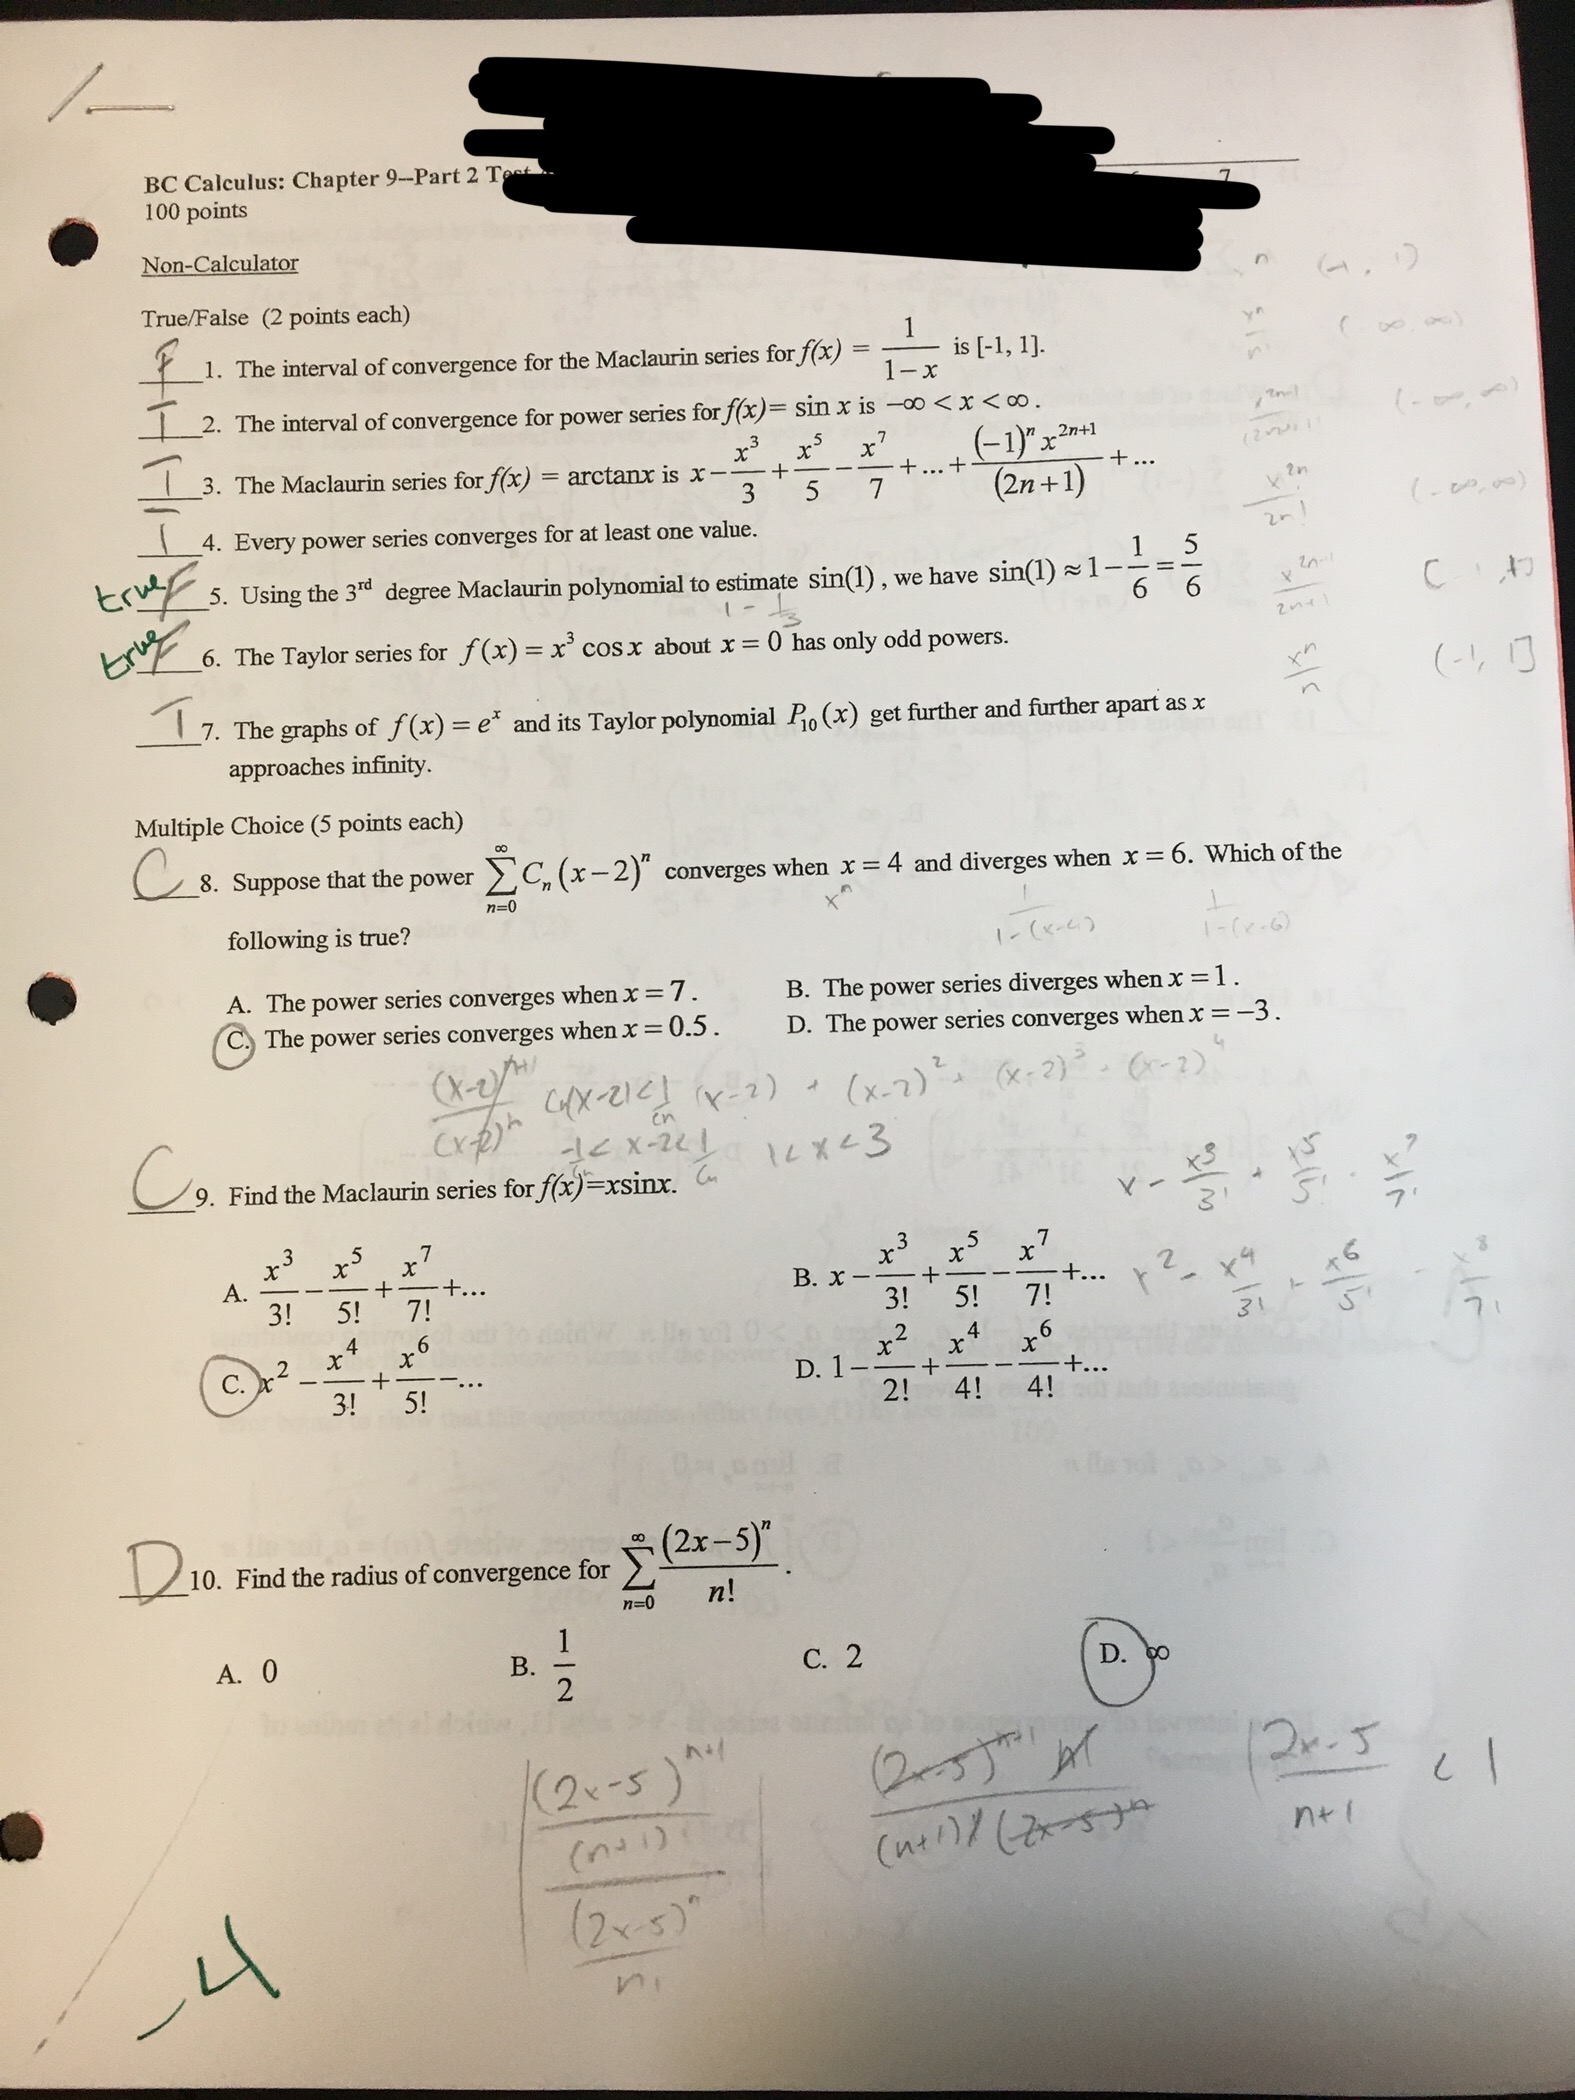 BC Calculus: Chapter 9--Part 2 Test
100 points
7
Non-Calculator
n (-1, 1)
True/False (2 points each)
xⁿ/n! (-∞, ∞)
F 1. The interval of convergence for the Maclaurin series for f(x) = 1/(1−x) is [-1, 1].
T 2. The interval of convergence for power series for f(x)= sin x is −∞ < x < ∞.
(-∞, ∞)
T 3. The Maclaurin series for f(x) = arctanx is x − x³/3 + x⁵/5 − x⁷/7 + ... + (−1)ⁿx²ⁿ⁺¹/(2n+1) + ...
x²ⁿ/2n! (-∞, ∞)
T 4. Every power series converges for at least one value.
true F 5. Using the 3rd degree Maclaurin polynomial to estimate sin(1), we have sin(1) ≈ 1 − 1/6 = 5/6
1 - 1/3
true F 6. The Taylor series for f(x) = x³ cos x about x = 0 has only odd powers.
xⁿ/n (-1, 1]
T 7. The graphs of f(x) = eˣ and its Taylor polynomial P₁₀(x) get further and further apart as x
approaches infinity.
Multiple Choice (5 points each)
C 8. Suppose that the power ∑ₙ₌₀^∞ Cₙ(x−2)ⁿ converges when x = 4 and diverges when x = 6. Which of the
xⁿ 1/1-(x-4) 1/1-(x-6)
following is true?
A. The power series converges when x = 7.
B. The power series diverges when x = 1.
C. The power series converges when x = 0.5.
D. The power series converges when x = −3.
(x-2)ⁿ⁺¹/(x-2)ⁿ Cn|x-2|<1/cn (x-2) + (x-2)² + (x-2)³ + (x-2)⁴
-1/Cn < x-2 < 1/Cn 1 < x < 3
x - x³/3! + x⁵/5! - x⁷/7!
C 9. Find the Maclaurin series for f(x)=xsinx.
A. x³/3! − x⁵/5! + x⁷/7! +...
B. x − x³/3! + x⁵/5! − x⁷/7! +...
x² - x⁴/3! + x⁶/5! - x⁸/7!
C. x² − x⁴/3! + x⁶/5! −...
D. 1 − x²/2! + x⁴/4! − x⁶/4! +...
D 10. Find the radius of convergence for ∑ₙ₌₀^∞ (2x−5)ⁿ/n! .
A. 0
B. 1/2
C. 2
D. ∞
|(2x-5)ⁿ⁺¹/(n+1)! / (2x-5)ⁿ/n!|
(2x-5)ⁿ⁺¹ n!/(n+1)! (2x-5)ⁿ
|2x-5/n+1 < 1
-4